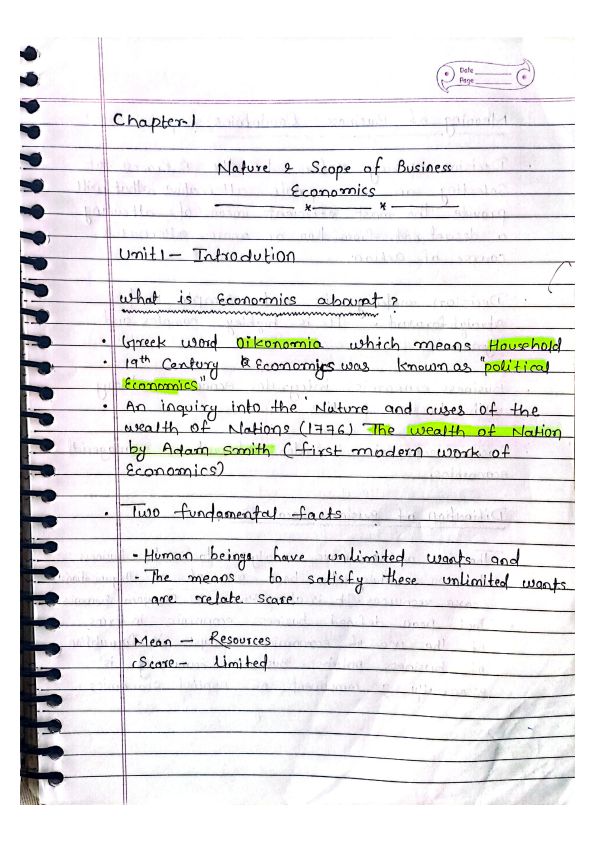 Date
Page
Chapter-1
Nature & Scope of Business
Economics
Unit 1 - Introdution
What is Economics abount?
• Greek word Oikonomia which means Household
• 19th Century Economics was known as "political
Economics"
• An inquiry into the Nature and cuses of the
wealth of Nations (1776) The wealth of Nation
by Adam Smith (first modern work of
Economics)
• Two fundamental facts
- Human beings have unlimited wants and
- The means to satisfy these unlimited wants
are relate scare
Mean - Resources
Scare - limited